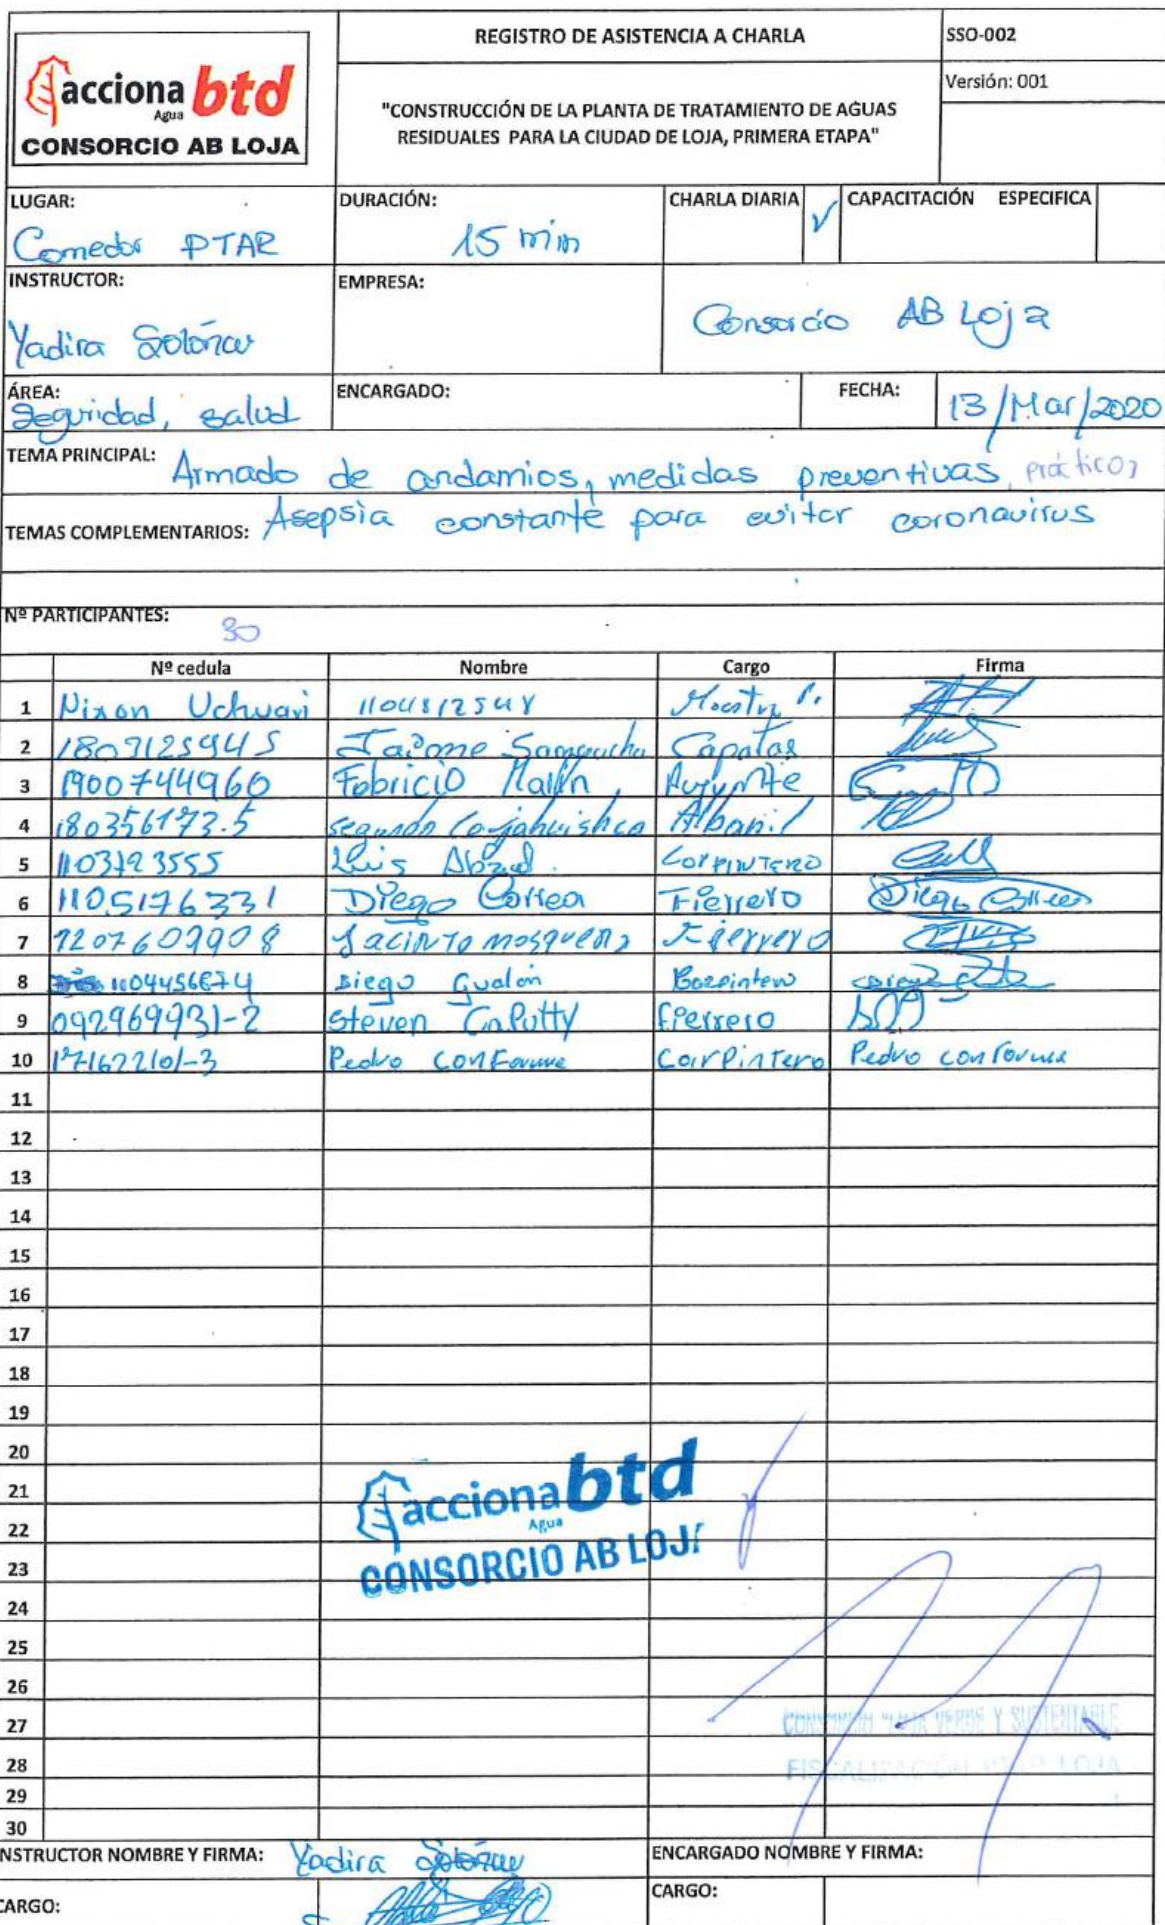 acciona btd
Agua
CONSORCIO AB LOJA
REGISTRO DE ASISTENCIA A CHARLA
SSO-002
Versión: 001
"CONSTRUCCIÓN DE LA PLANTA DE TRATAMIENTO DE AGUAS
RESIDUALES PARA LA CIUDAD DE LOJA, PRIMERA ETAPA"
LUGAR: Comedor PTAR
DURACIÓN: 15 min
CHARLA DIARIA √
CAPACITACIÓN ESPECIFICA
INSTRUCTOR: Yadira
EMPRESA: Consorcio AB Loja
ÁREA: Seguridad, salud
ENCARGADO:
FECHA: 13/Mar/2020
TEMA PRINCIPAL: Armado de andamios, medidas preventivas,
TEMAS COMPLEMENTARIOS: Asepsia constante para evitar coronavirus
Nº PARTICIPANTES: 30
Nº cedula Nombre Cargo Firma
1 Nixon Uchuari
2 1803125945 Capataz
3 1900744960 Fabricio
4 180356173.5 Segundo Albanil
5 1103123555 Luis Carpintero
6 1105176331 Diego Correa Fierrero Diego Correa
7 Jacinto Mosquera Fierrero
8 Diego Gualan
9 092969931-2 Steven Fierrero
10 171622101-3 Pedro Conforme Carpintero Pedro Conforme
11
12
13
14
15
16
17
18
19
20
21
22
23
24
25
26
27
28
29
30
acciona btd
Agua
CONSORCIO AB LOJ
CONSORCIO "LOJA VERDE Y SUSTENTABLE
FISCALIZACIÓN PTAR LOJA
NSTRUCTOR NOMBRE Y FIRMA: Yadira
ENCARGADO NOMBRE Y FIRMA:
CARGO:
CARGO: